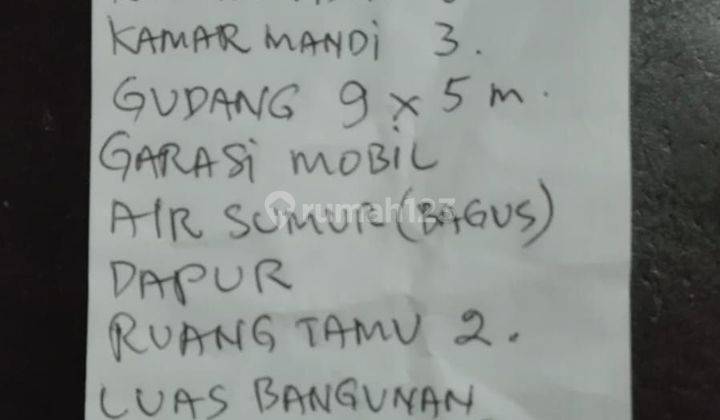 KAMAR MANDi 3.
GUDANG 9 x 5 m.
GARASi MOBiL
AIR SUMUR (BAGUS)
rumah123
DAPUR
RUANG TAMU 2.
LUAS BANGUNAN